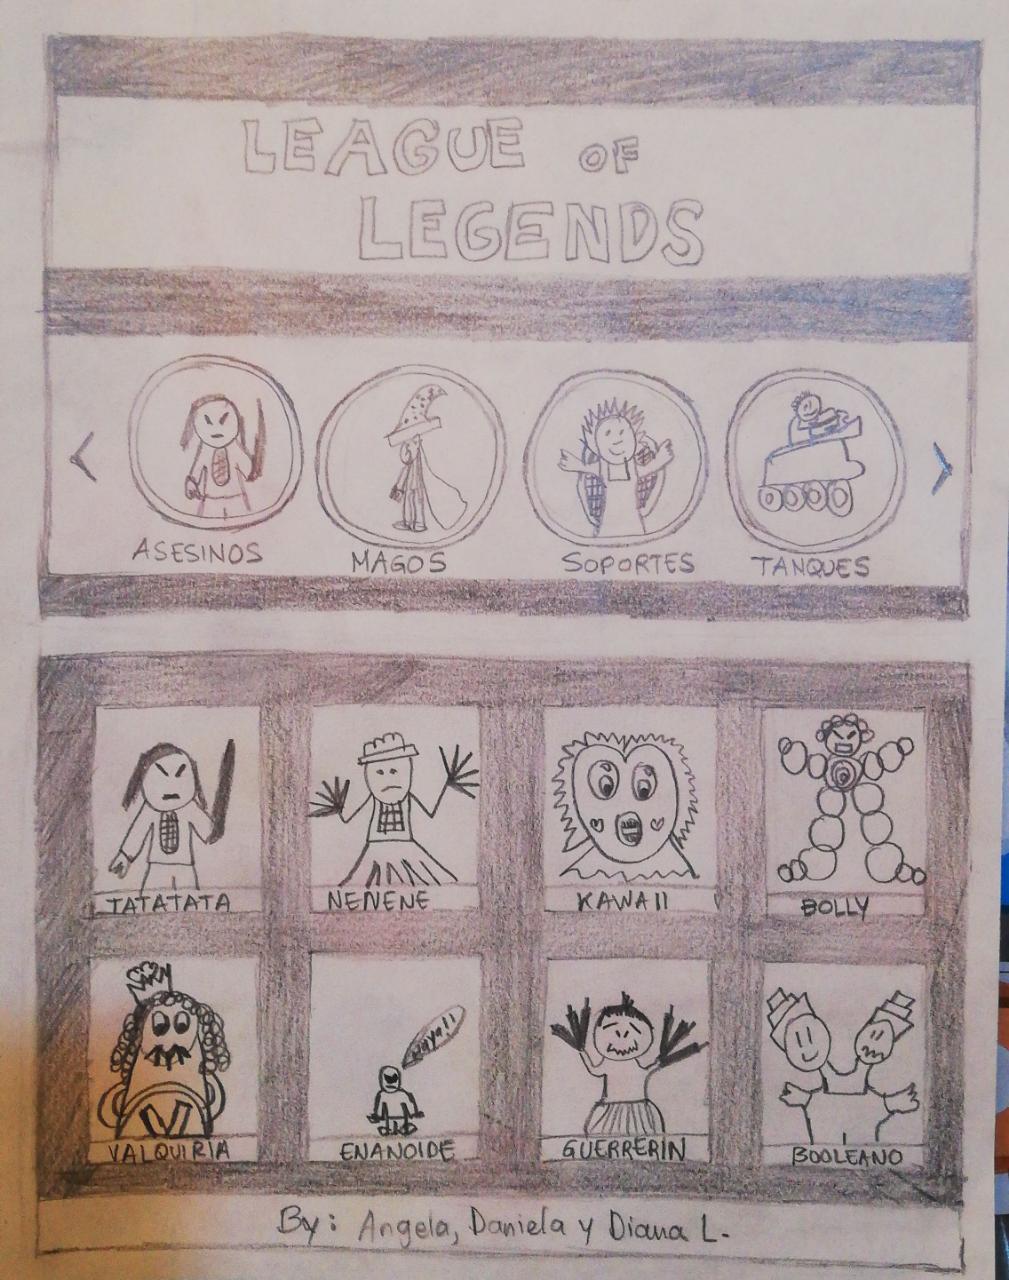 LEAGUE OF
LEGENDS
ASESINOS MAGOS SOPORTES TANQUES
TATATATA NENENE KAWAII BOLLY
VALQUIRIA ENANOIDE GUERRERIN BOOLEANO
By: Angela, Daniela y Diana L.